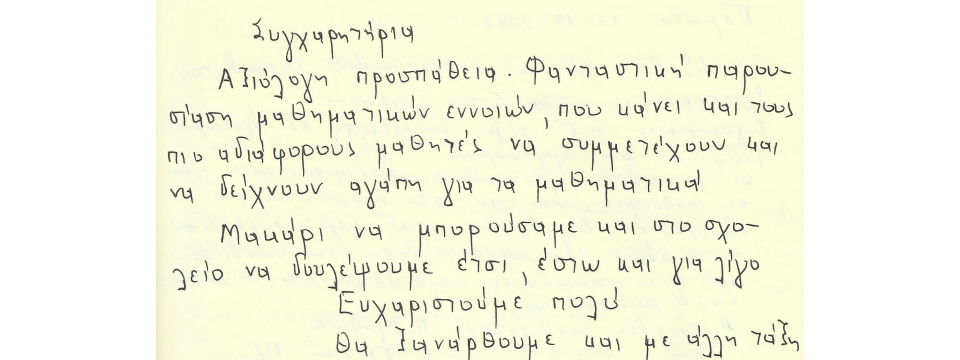 Συγχαρητήρια
Αξιόλογη προσπάθεια. Φανταστική παρου-
σίαση μαθηματικών εννοιών, που κάνει και τους
πιο αδιάφορους μαθητές να συμμετέχουν και
να δείχνουν αγάπη για τα μαθηματικά
Μακάρι να μπορούσαμε και στο σχο-
λείο να δουλέψουμε έτσι, έστω και για λίγο
Ευχαριστούμε πολύ
Θα ξανάρθουμε και με άλλη τάξη